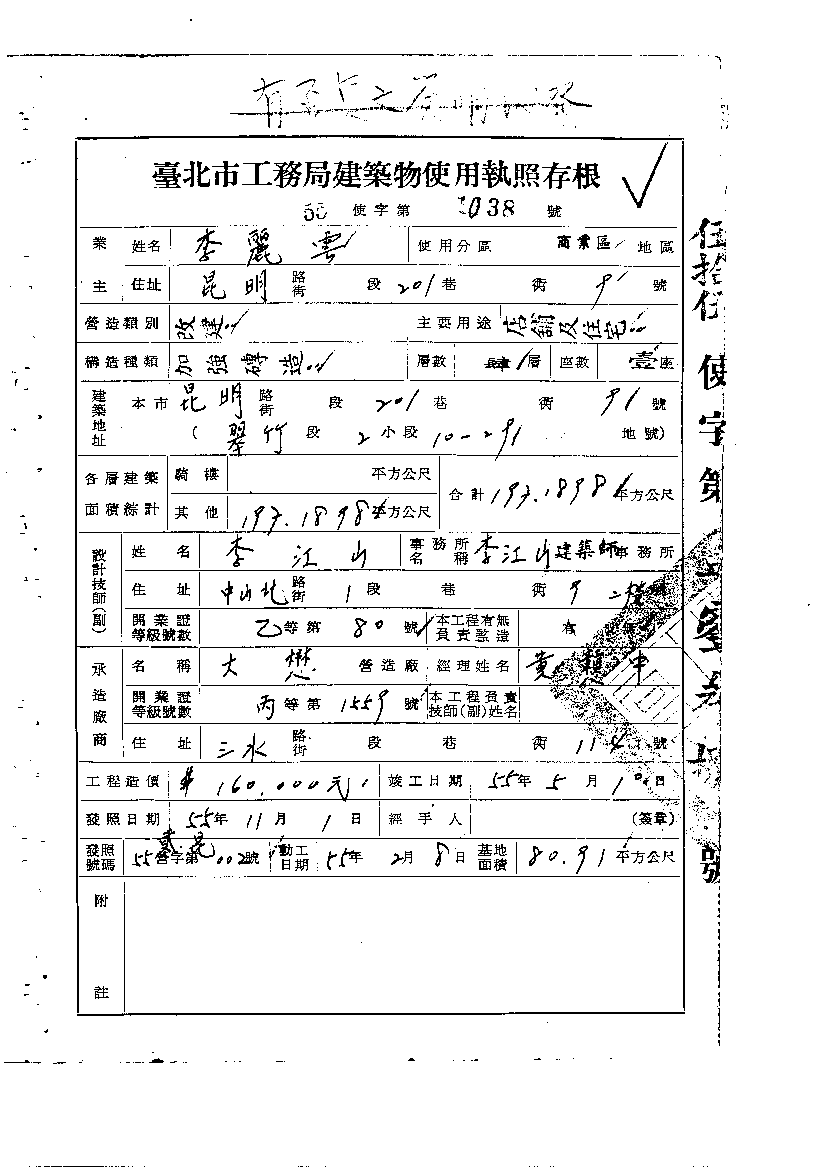 臺北市工務局建築物使用執照存根
55 使字第 1038 號
業主 姓名 李麗雲 使用分區 商業區 地區
住址 昆明 路街 段 201 巷 衖 9 號
營造類別 改建 主要用途 店鋪及住宅
構造種類 加強磚造 層數 肆 層 座數 壹 座
建築地址 本市 昆明 路街 段 201 巷 衖 9 號
( 翠竹 段 2 小段 10-29 地號)
各層建築面積綜計 騎樓 平方公尺 合計 197.1898 平方公尺
其他 197.1898 平方公尺
設計技師(副) 姓名 李江山 事務所名稱 李江山建築師事務所
住址 中山北 路街 1 段 巷 衖 9 二樓 號
開業證等級號數 乙等第 80 號 本工程有無負責監造 有
承造廠商 名稱 大懋 營造廠 經理姓名 黃 中
開業證等級號數 丙等第 1559 號 本工程負責技師(副)姓名
住址 三水 路街 段 巷 衖 11 號
工程造價 160,000元 竣工日期 55年 5月 10日
發照日期 55年 11月 1日 經手人 (簽章)
發照號碼 55營字第 貳昆 002號 動工日期 55年 2月 8日 基地面積 80.91 平方公尺
附註
伍拾伍 使字第 號